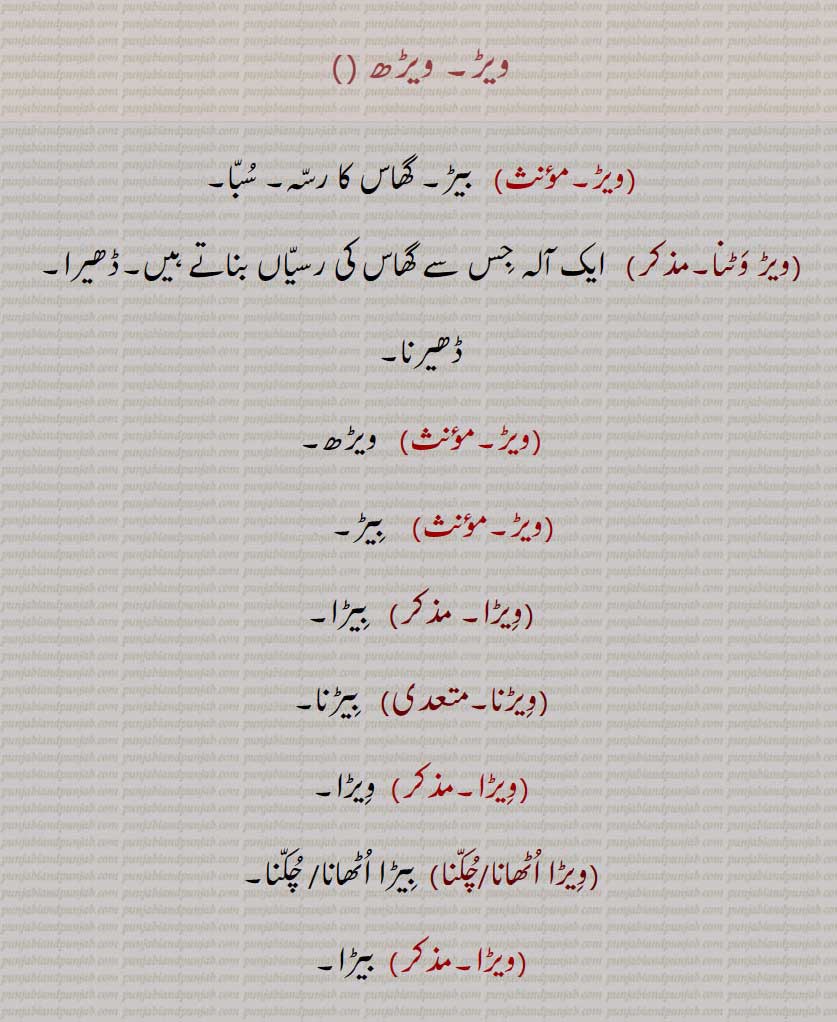 ویڑ۔ ویڑھ ()
(ویڑ۔مؤنث) بیڑ۔ گھاس کا رسّہ۔ سُبّا۔
(ویڑ وَٹنا۔مذکر) ایک آلہ جِس سے گھاس کی رسیّاں بناتے ہیں۔ڈھیرا۔
ڈھیرنا۔
(ویڑ۔مؤنث) ویڑھ۔
(ویڑ۔مؤنث) بِیڑ۔
(وِیڑا۔ مذکر) بِیڑا۔
(وِیڑنا۔متعدی) بِیڑنا۔
(وِیڑا۔مذکر) وِیڑا۔
(وِیڑا اُٹھانا/چُکّنا) بِیڑا اُٹھانا/ چُکّنا۔
(ویڑا۔مذکر) بیڑا۔
punjabiandpunjab.com